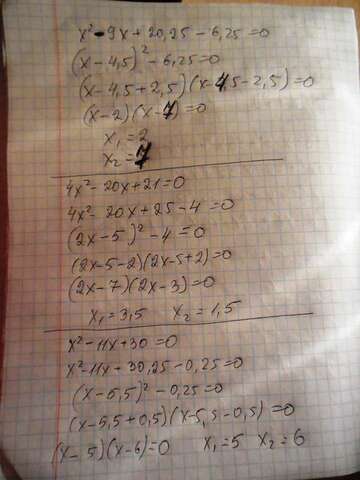 x² - 9x + 20,25 - 6,25 = 0
(x - 4,5)² - 6,25 = 0
(x - 4,5 + 2,5)(x - 4,5 - 2,5) = 0
(x - 2)(x - 7) = 0
x₁ = 2
x₂ = 7
4x² - 20x + 21 = 0
4x² - 20x + 25 - 4 = 0
(2x - 5)² - 4 = 0
(2x - 5 - 2)(2x - 5 + 2) = 0
(2x - 7)(2x - 3) = 0
x₁ = 3,5 x₂ = 1,5
x² - 11x + 30 = 0
x² - 11x + 30,25 - 0,25 = 0
(x - 5,5)² - 0,25 = 0
(x - 5,5 + 0,5)(x - 5,5 - 0,5) = 0
(x - 5)(x - 6) = 0 x₁ = 5 x₂ = 6